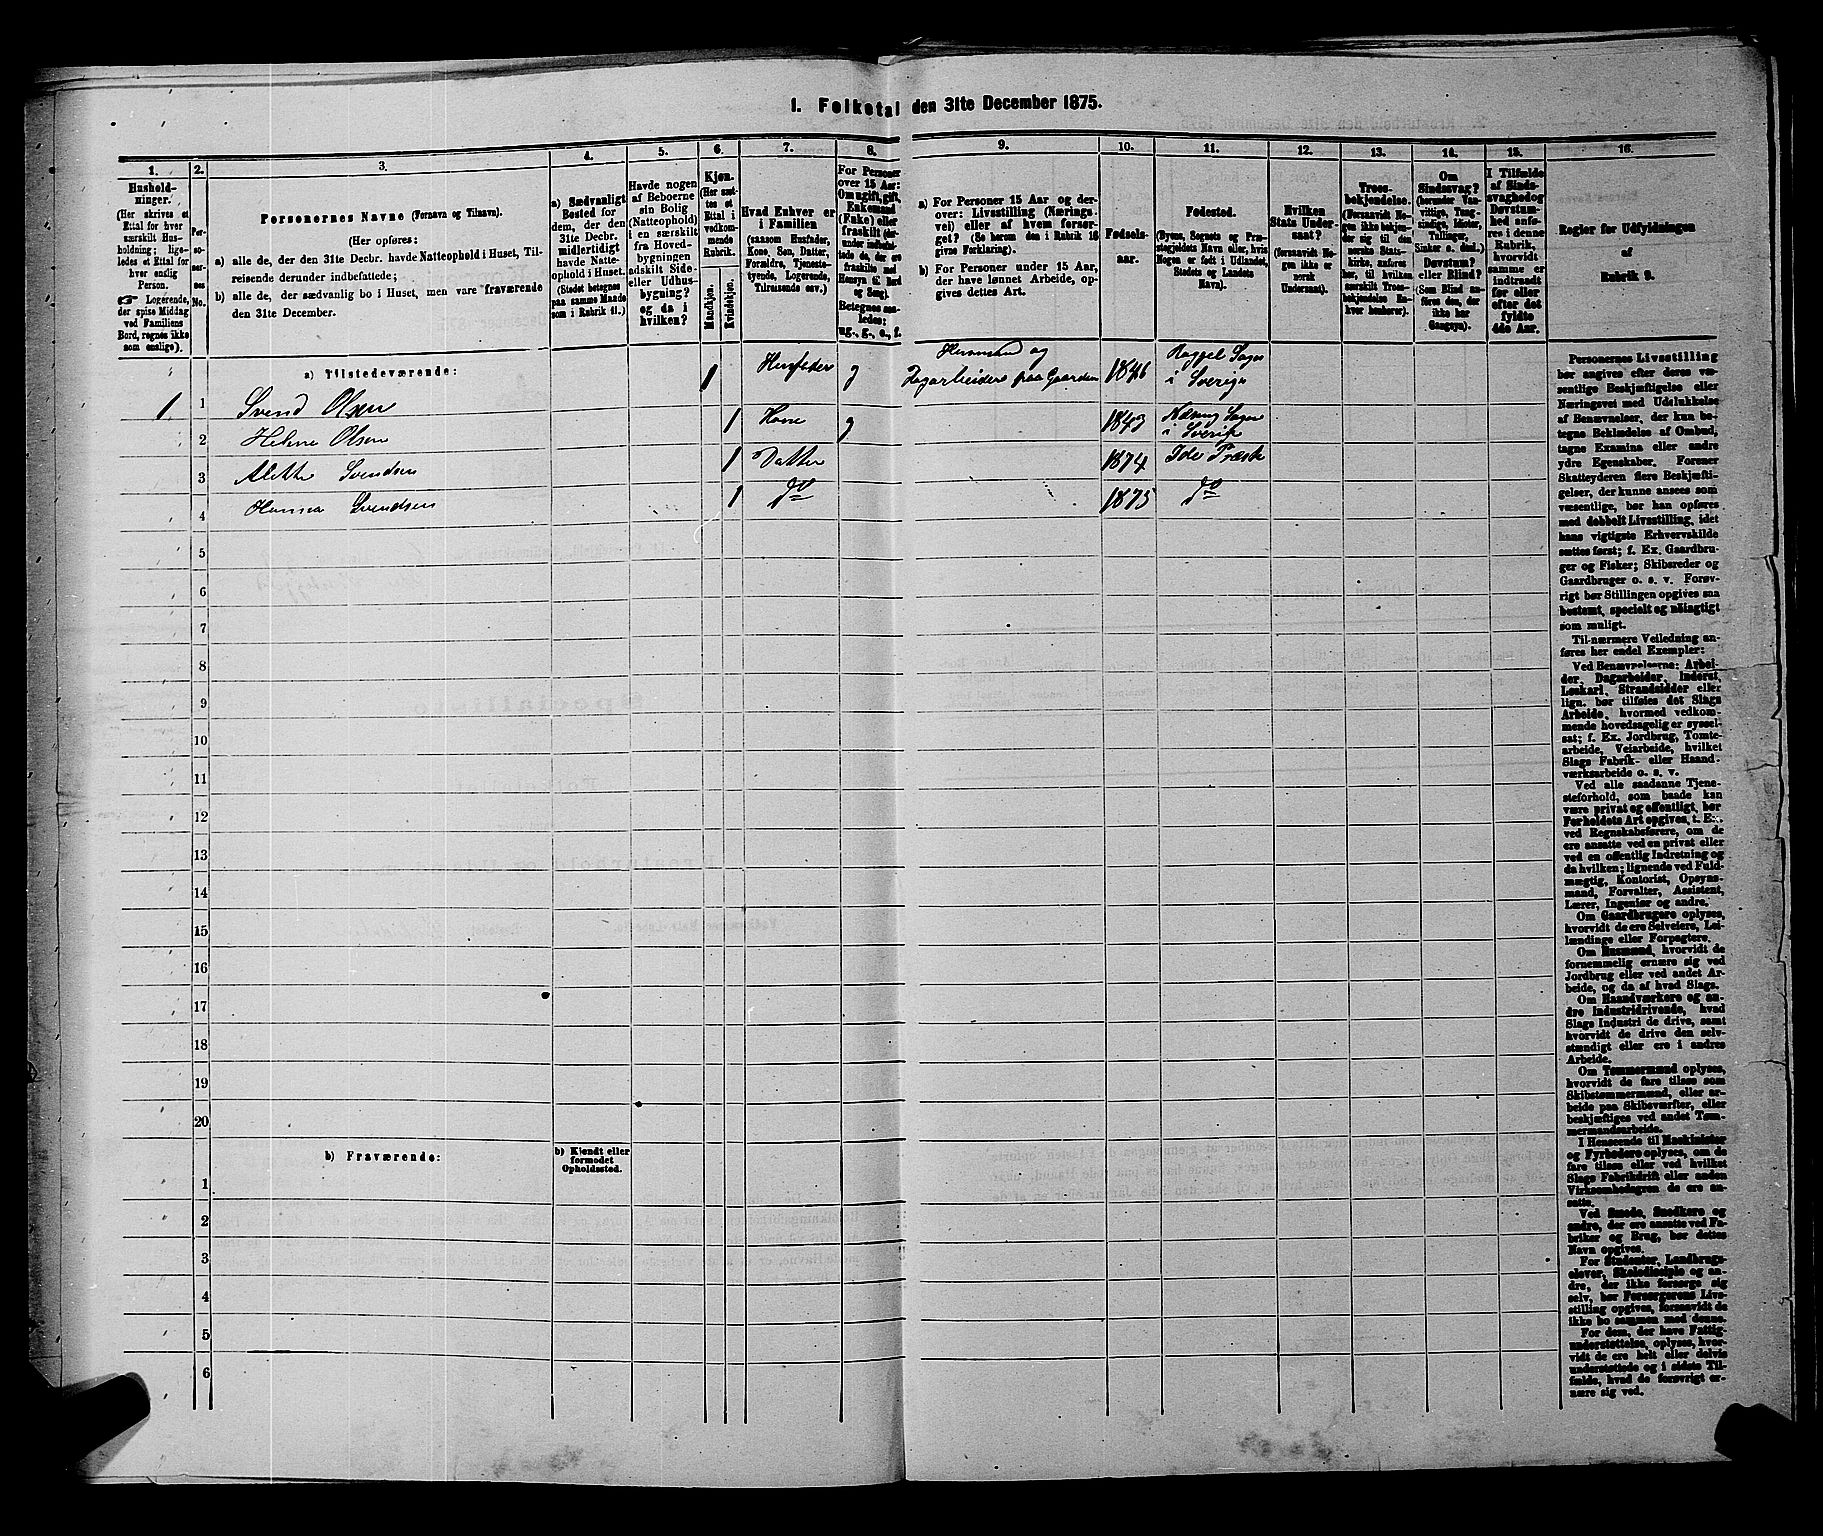 1. Folketal den 31te December 1875.
1. 2. 3. 4. 5. 6. 7. 8. 9. 10. 11. 12. 13. 14. 15. 16.
Hushold-
ninger.
(Her skrives et
Ettal for hver
særskilt Hus-
holdning; lige-
ledes et Ettal for
hver enslig
Person.
☞ Logerende,
der spise Middag
ved Familiens
Bord, regnes ikke
som enslige).
Per-
so-
ner-
nes
No.
Personernes Navne (Fornavn og Tilnavn).
(Her opføres:
a) alle de, der den 31te Decbr. havde Natteophold i Huset, Til-
reisende derunder indbefattede;
b) alle de, der sædvanlig bo i Huset, men vare fraværende
den 31te December.
a) Sædvanligt
Bosted for
dem, der den
31te Decbr.
midlertidigt
havde Natte-
ophold i Huset.
(Stedet betegnes
paa samme Maade
som i Rubrik 11.)
Havde nogen
af Beboerne
sin Bolig
(Natteophold)
i en særskilt
fra Hoved-
bygningen
adskilt Side-
eller Udhus-
bygning?
og da i
hvilken?
Kjøn.
(Her sæt-
tes et
Ettal i
vedkom-
mende
Rubrik.
Mandkjøn.
Kvindekjøn.
Hvad Enhver er
i Familien
(saasom Husfader,
Kone, Søn, Datter,
Forældre, Tjeneste-
tyende, Logerende,
Tilreisende osv.)
For Personer
over 15 Aar:
Om ugift, gift,
Enkemand
(Enke) eller
fraskilt (der-
under indbefat-
tede de, der ere
fraskilte med
Hensyn til Bord
og Seng).
Betegnes saa-
ledes:
ug., g., e., f.
a) For Personer 15 Aar og der-
over: Livsstilling (Nærings-
vei) eller af hvem forsør-
get? (Se herom den i Rubrik 16
givne Forklaring).
b) For Personer under 15 Aar,
der have lønnet Arbeide, op-
gives dettes Art.
Fødsels-
aar.
Fødested.
(Byens, Sognets og Præ-
stegjeldets Navn eller, hvis
Nogen er født i Udlandet,
Stedets og Landets
Navn).
Hvilken
Stats Under-
saat?
(forsaavidt No-
gen ikke er
norsk
Undersaat).
Troes-
bekjendelse.
(Forsaavidt No-
gen ikke bekjen-
der sig til den
norske Stats-
kirke, anføres
her, til hvilken
særskilt Troes-
bekjendelse En-
hver henhører).
Om
Sindssvag?
(herunder Van-
vittige, Tung-
sindigt, Idioter,
Tullinger,
Sinker o. desl.)
Døvstum?
eller Blind?
(Som Blind an-
føres den, der
ikke har
Gangsyn).
I Tilfælde
af Sinds-
svaghed og
Døvstum-
hed anfø-
res i denne
Rubrik,
hvorvidt
samme er
indtraadt
før eller
efter det
fyldte
4de Aar.
Regler for Udfyldningen
af
Rubrik 9.
a) Tilstedeværende:
1 1 Svend Olsen 1 Husfader g Husmand og
Dagarbeider paa Gaarden 1846 Sogn
i Sverige
2 Helene Olsen 1 Kone g 1843 Sogn
i Sverige
3 Svendsen 1 Datter 1874 Ide Præst
4 Hanna Svendsen 1 do 1875 do
5
6
7
8
9
10
11
12
13
14
15
16
17
18
19
20
b) Fraværende:
b) Kjendt eller
formodet
Opholdssted.
1
2
3
4
5
6
Personernes Livsstilling
bør angives efter deres væ-
sentlige Beskjæftigelse eller
Næringsvei med Udelukkelse
af Benævnelser, der kun be-
tegne Beklædelse af Ombud,
tagne Examina eller andre
ydre Egenskaber. Forener
Skatteyderen flere Beskjæfti-
gelser, der kunne ansees som
væsentlige, bør han opføres
med dobbelt Livsstilling, idet
hans vigtigste Erhvervskilde
sættes først; f. Ex. Gaardbru-
ger og Fisker; Skibsreder og
Gaardbruger o. s. v. Forøv-
rigt bør Stillingen opgives saa
bestemt, specielt og nøiagtigt
som muligt.
Til nærmere Veiledning an-
føres her endel Exempler:
Ved Benævnelserne: Arbei-
der, Dagarbeider, Inderst,
Løskarl, Strandsidder eller
lign. bør tilføies det Slags
Arbeide, hvormed vedkom-
mende hovedsagelig er syssel-
sat; f. Ex. Jordbrug, Tomte-
arbeide, Veiarbeide, hvilket
Slags Fabrik- eller Haand-
værksarbeide o. s. v.
Ved alle saadanne Tjene-
steforhold, som baade kan
være privat og offentligt, bør
Forholdets Art opgives, t. Ex.
ved Regnskabsførere, om de
ere ansatte ved en privat eller
ved en offentlig Indretning og
da hvilken; lignende ved Fuld-
mægtig, Kontorist, Opsyns-
mand, Forvalter, Assistent,
Lærer, Ingeniør og andre.
Om Gaardbrugere oplyses,
hvorvidt de ere Selveiere, Lei-
lændinge eller Forpagtere.
Om Husmænd, hvorvidt de
fornemmelig ernære sig ved
Jordbrug eller ved andet Ar-
beide, og da af hvad Slags.
Om Haandværkere og an-
dre Industridrivende, hvad
Slags Industri de drive, samt
hvorvidt de drive den selv-
stændigt eller ere i andres
Arbeide.
Om Tømmermænd oplyses,
hvorvidt de fare tilsøs som
Skibstømmermænd, eller ar-
beide paa Skibsværfter, eller
beskjæftiges ved andet Tøm-
mermandsarbeide.
I Henseende til Maskinister
og Fyrbødere oplyses, om de
fare tilsøs eller ved hvilket
Slags Fabrikdrift eller anden
Virksomhedsgren de ere an-
satte.
Ved Smede, Snedkere og
andre, der ere ansatte ved Fa-
briker og Brug, bør dettes
Navn opgives.
For Studenter, Landbrugs-
elever, Skoledisciple og an-
dre, der ikke forsørge sig
selv, bør Forsørgerens Livs-
stilling opgives, forsaavidt de
ikke bo sammen med denne.
For dem, der have Fattig-
understøttelse, oplyses, hvor-
vidt de ere helt eller delvis
understøttede og i sidste Til-
fælde, hvad de forøvrigt er-
nære sig ved.